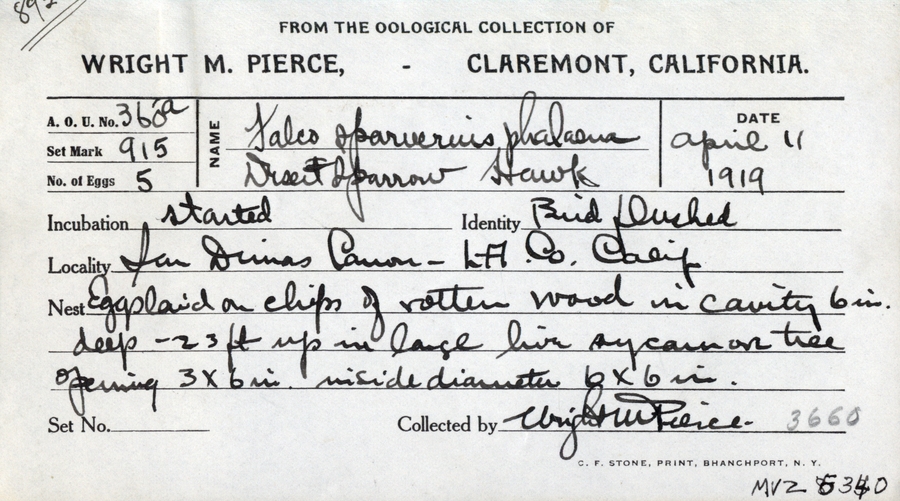 FROM THE OOLOGICAL COLLECTION OF
WRIGHT M. PIERCE, - CLAREMONT, CALIFORNIA.
A. O. U. No. 360a
Set Mark 915
No. of Eggs 5
NAME
Falco sparverius phalaena
Desert Sparrow Hawk
DATE
April 11
1919
Incubation started Identity Bird flushed
Locality San Dimas Canon - LA. Co. Calif
Nest Eggs laid on chips of rotten wood in cavity 6 in.
deep - 23 ft up in large live sycamore tree
opening 3 X 6 in. inside diameter 6 X 6 in.
Set No. Collected by Wright M Pierce.
3660
C. F. STONE, PRINT, BHANCHPORT, N. Y.
MVZ